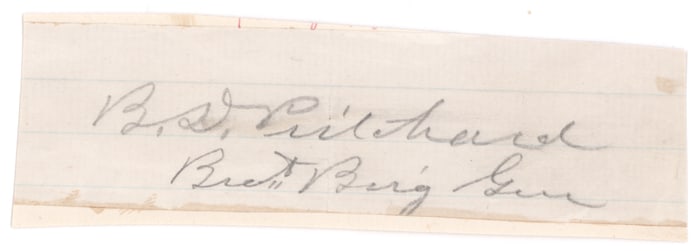 B. D. Pritchard
Brevt Brig Gen